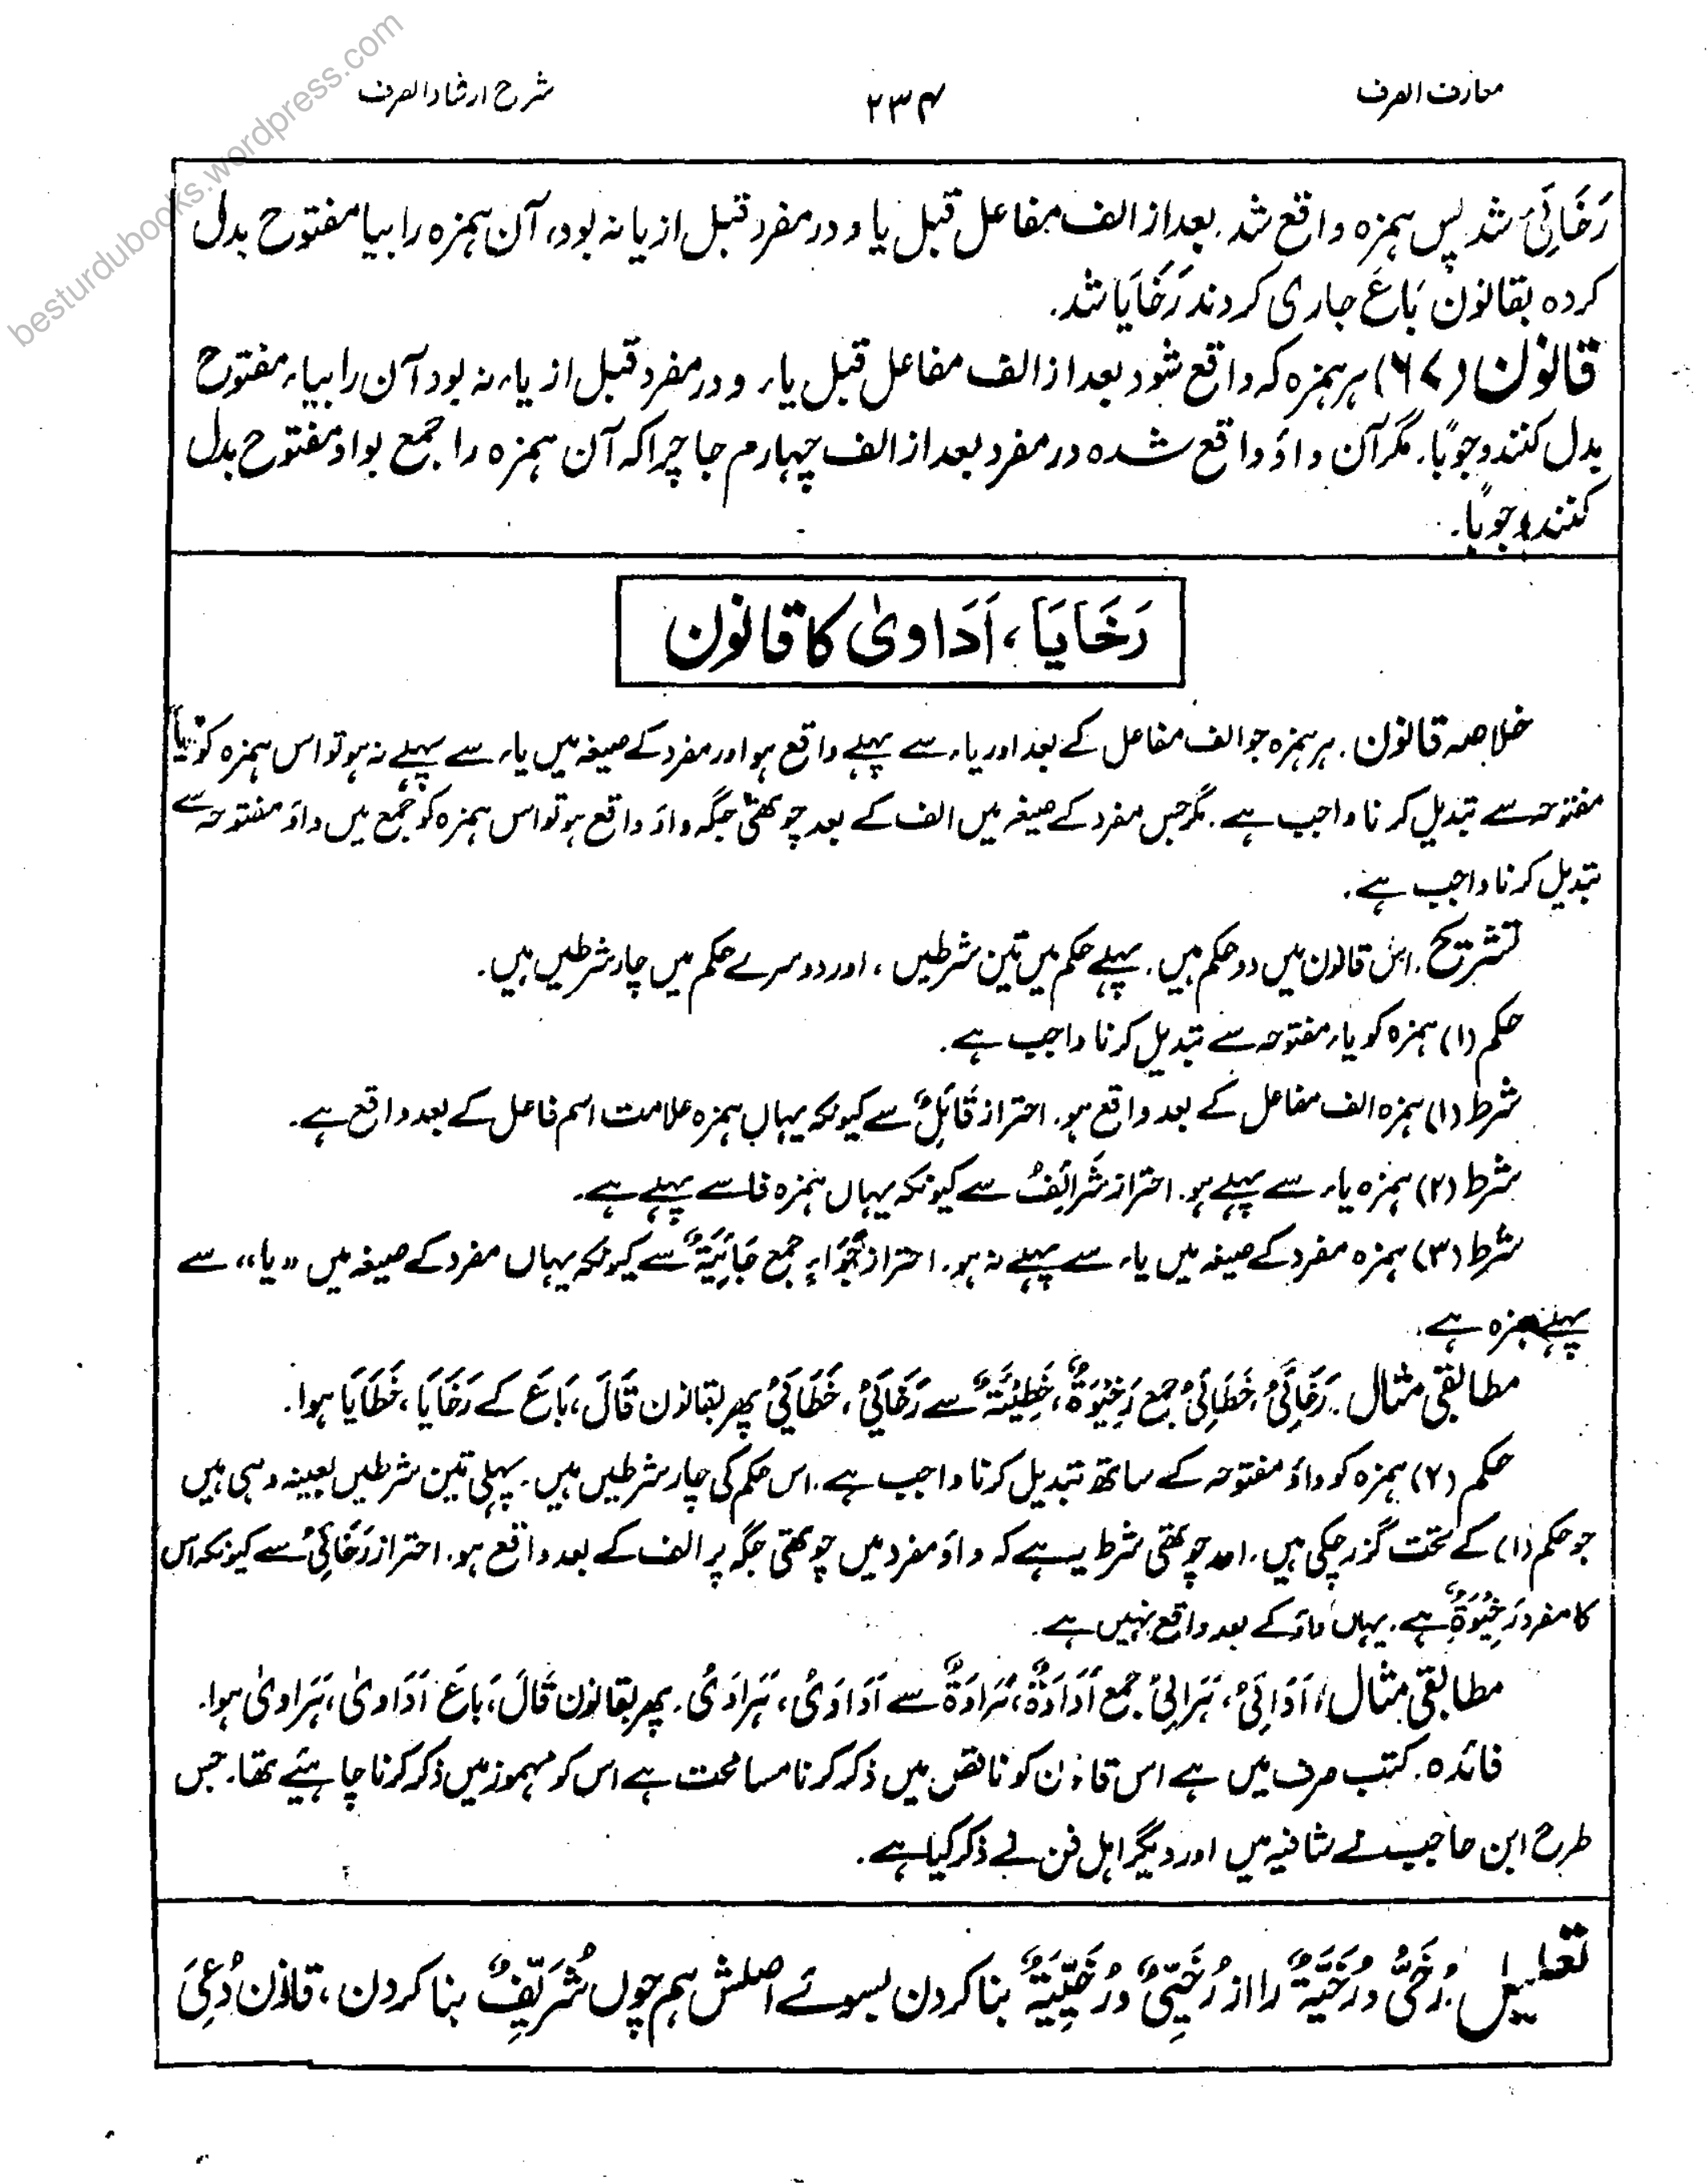 besturdubooks.wordpress.com
معارف الصرف
۲۳۴
شرح ارشاد الصرف
رَخَائِیُ شد پس ہمزہ واقع شد بعد از الف مفاعل قبل یا و در مفرد قبل از یا نہ بود، آں ہمزہ را بیا مفتوح بدل
کردہ بقانون بَاعَ جاری کردند رَخَایَا شد.
قانون (۶۷) ہر ہمزہ کہ واقع شود بعد از الف مفاعل قبل یاء و در مفرد قبل از یاء نہ بود آن را بیاء مفتوح
بدل کنند وجوبًا. مگر آن واؤ واقع شدہ در مفرد بعد از الف چہارم جا چرا کہ آن ہمزہ را جمع بواو مفتوح بدل
کنند وجوبًا.
رَخَایَا، اَدَاوٰی کا قانون
خلاصہ قانون. ہر ہمزہ جو الف مفاعل کے بعد اور یاء سے پہلے واقع ہو اور مفرد کے صیغہ میں یاء سے پہلے نہ ہو تو اس ہمزہ کو یا
مفتوحہ سے تبدیل کرنا واجب ہے. مگر جس مفرد کے صیغہ میں الف کے بعد چوتھی جگہ واؤ واقع ہو تو اس ہمزہ کو جمع میں واؤ مفتوحہ سے
تبدیل کرنا واجب ہے.
تشریح. اس قانون میں دو حکم ہیں. پہلے حکم میں تین شرطیں، اور دوسرے حکم میں چار شرطیں ہیں.
حکم (۱) ہمزہ کو یاء مفتوحہ سے تبدیل کرنا واجب ہے.
شرط (۱) ہمزہ الف مفاعل کے بعد واقع ہو. احتراز قَائِلٌ سے کیونکہ یہاں ہمزہ علامت اسم فاعل کے بعد واقع ہے.
شرط (۲) ہمزہ یاء سے پہلے ہو. احتراز شَرَائِفُ سے کیونکہ یہاں ہمزہ فا سے پہلے ہے.
شرط (۳) ہمزہ مفرد کے صیغہ میں یاء سے پہلے نہ ہو. احتراز جَوَاءٍ جمع جَائِیَۃٌ سے کیونکہ یہاں مفرد کے صیغہ میں "یا" سے
پہلے ہمزہ ہے.
مطابقی مثال. رَخَائِیُ، خَطَائِیُ جمع رَخِیْوَۃٌ، خَطِیْئَۃٌ سے رَخَایَیُ، خَطَایَیُ پھر بقانون قَالَ، بَاعَ کے رَخَایَا، خَطَایَا ہوا.
حکم (۲) ہمزہ کو واؤ مفتوحہ کے ساتھ تبدیل کرنا واجب ہے. اس حکم کی چار شرطیں ہیں. پہلی تین شرطیں بعینہ وہی ہیں
جو حکم (۱) کے تحت گزر چکی ہیں. اور چوتھی شرط یہ ہے کہ واؤ مفرد میں چوتھی جگہ پر الف کے بعد واقع ہو. احتراز رَخَائِیُ سے کیونکہ اس
کا مفرد رَخِیْوَۃٌ ہے. یہاں واؤ کے بعد واقع نہیں ہے.
مطابقی مثال، اَدَائِیُ، ہَرَائِیُ جمع اَدَاوَۃٌ، ہَرَاوَۃٌ سے اَدَاوَیُ، ہَرَاوَیُ. پھر بقانون قَالَ، بَاعَ اَدَاوٰی، ہَرَاوٰی ہوا.
فائدہ. کتب صرف میں ہے اس قانون کو ناقص میں ذکر کرنا مسامحت ہے اس کو مہموز میں ذکر کرنا چاہئیے تھا. جس
طرح ابن حاجب نے شافیہ میں اور دیگر اہل فن نے ذکر کیا ہے.
تعلیل. رُخَیٌّ و رُخَیَّۃٌ را از رُخَیِّیٌ و رُخَیِّیَۃٌ بنا کردن بسوئے اصلش ہم چوں شُرَیِّفٌ بنا کردن، قانون دُعِیَ